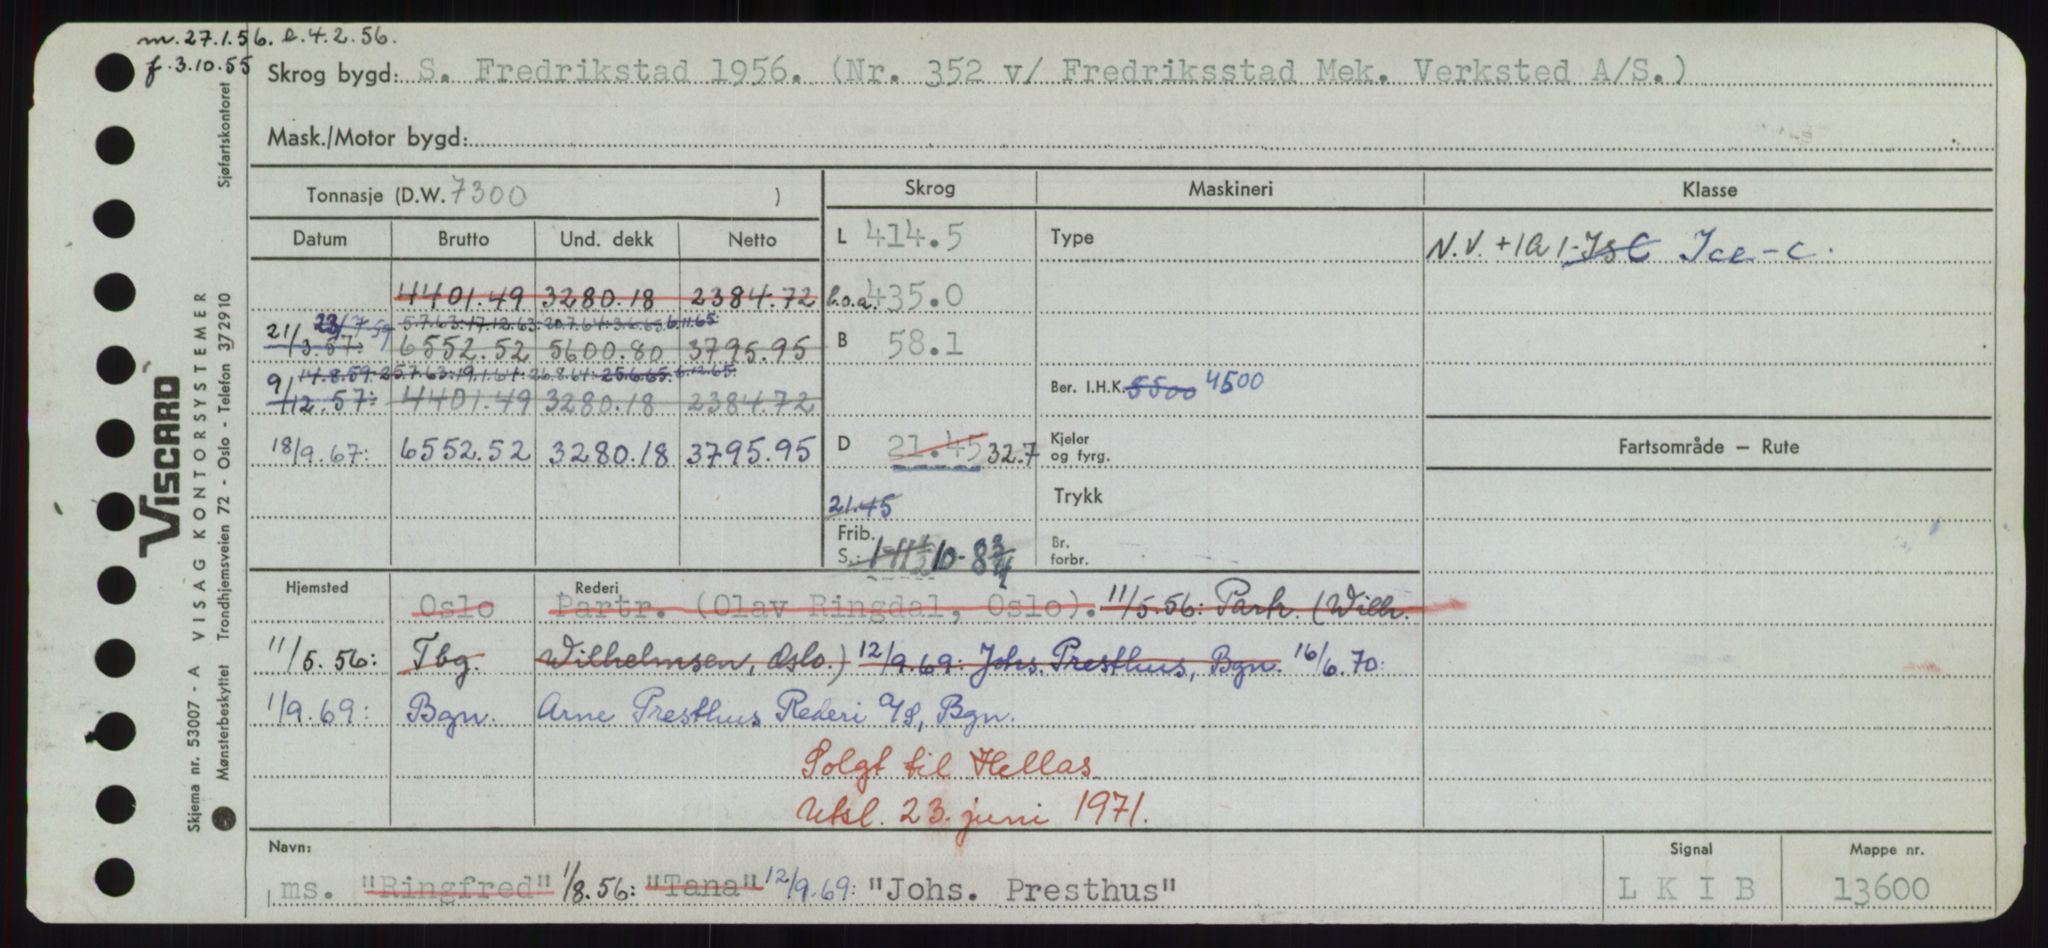 m. 27.1.56. l. 4.2.56.
f. 3.10.55
Skrog bygd: S. Fredrikstad 1956. (Nr. 352 v/ Fredriksstad Mek. Verksted A/S.)
Mask./Motor bygd:
Tonnasje (D.W. 7300 )
Skrog Maskineri Klasse
Datum Brutto Und. dekk Netto
L 414.5 Type N.V. +1A1-Is C Ice-C.
4401.49 3280.18 2384.72 l.o.a. 435.0
23/7 59 5.7.63: 17.12.63: 20.7.64: 3.6.65 6.11.65
21/3.57: 6552.52 5600.80 3795.95 B 58.1
14.8.59: 25.7.63: 19.1.64: 26.8.64: 25.6.65: 6.12.65:
9/12.57: 4401.49 3280.18 2384.72 Ber. I.H.K. 5500 4500
18/9.67: 6552.52 3280.18 3795.95 D 21.45 32.7 Kjeler og fyrg. Fartsområde — Rute
21.45 Trykk
Frib. S.: 1-11 1/2 10-8 3/4 Br. forbr.
Hjemsted Rederi
Oslo Partr. (Olav Ringdal, Oslo). 11/5.56: Partr. (Wilh.
11/5.56: Tbg. Wilhelmsen, Oslo.) 12/9.69: Johs. Presthus, Bgn. 16/6.70:
1/9.69: Bgn. Arne Presthus Rederi A/S, Bgn.
Solgt til Hellas
Utsl. 23. juni 1971.
Navn: Signal Mappe nr.
ms. "Ringfred" 1/8.56: "Tana" 12/9.69: "Johs. Presthus" L K I B 13600
VISCARD
Skjema nr. 53007 - A VISAG KONTORSYSTEMER
Mønsterbeskyttet Trondhjemsveien 72 - Oslo - Telefon 372910 Sjøfartskontoret